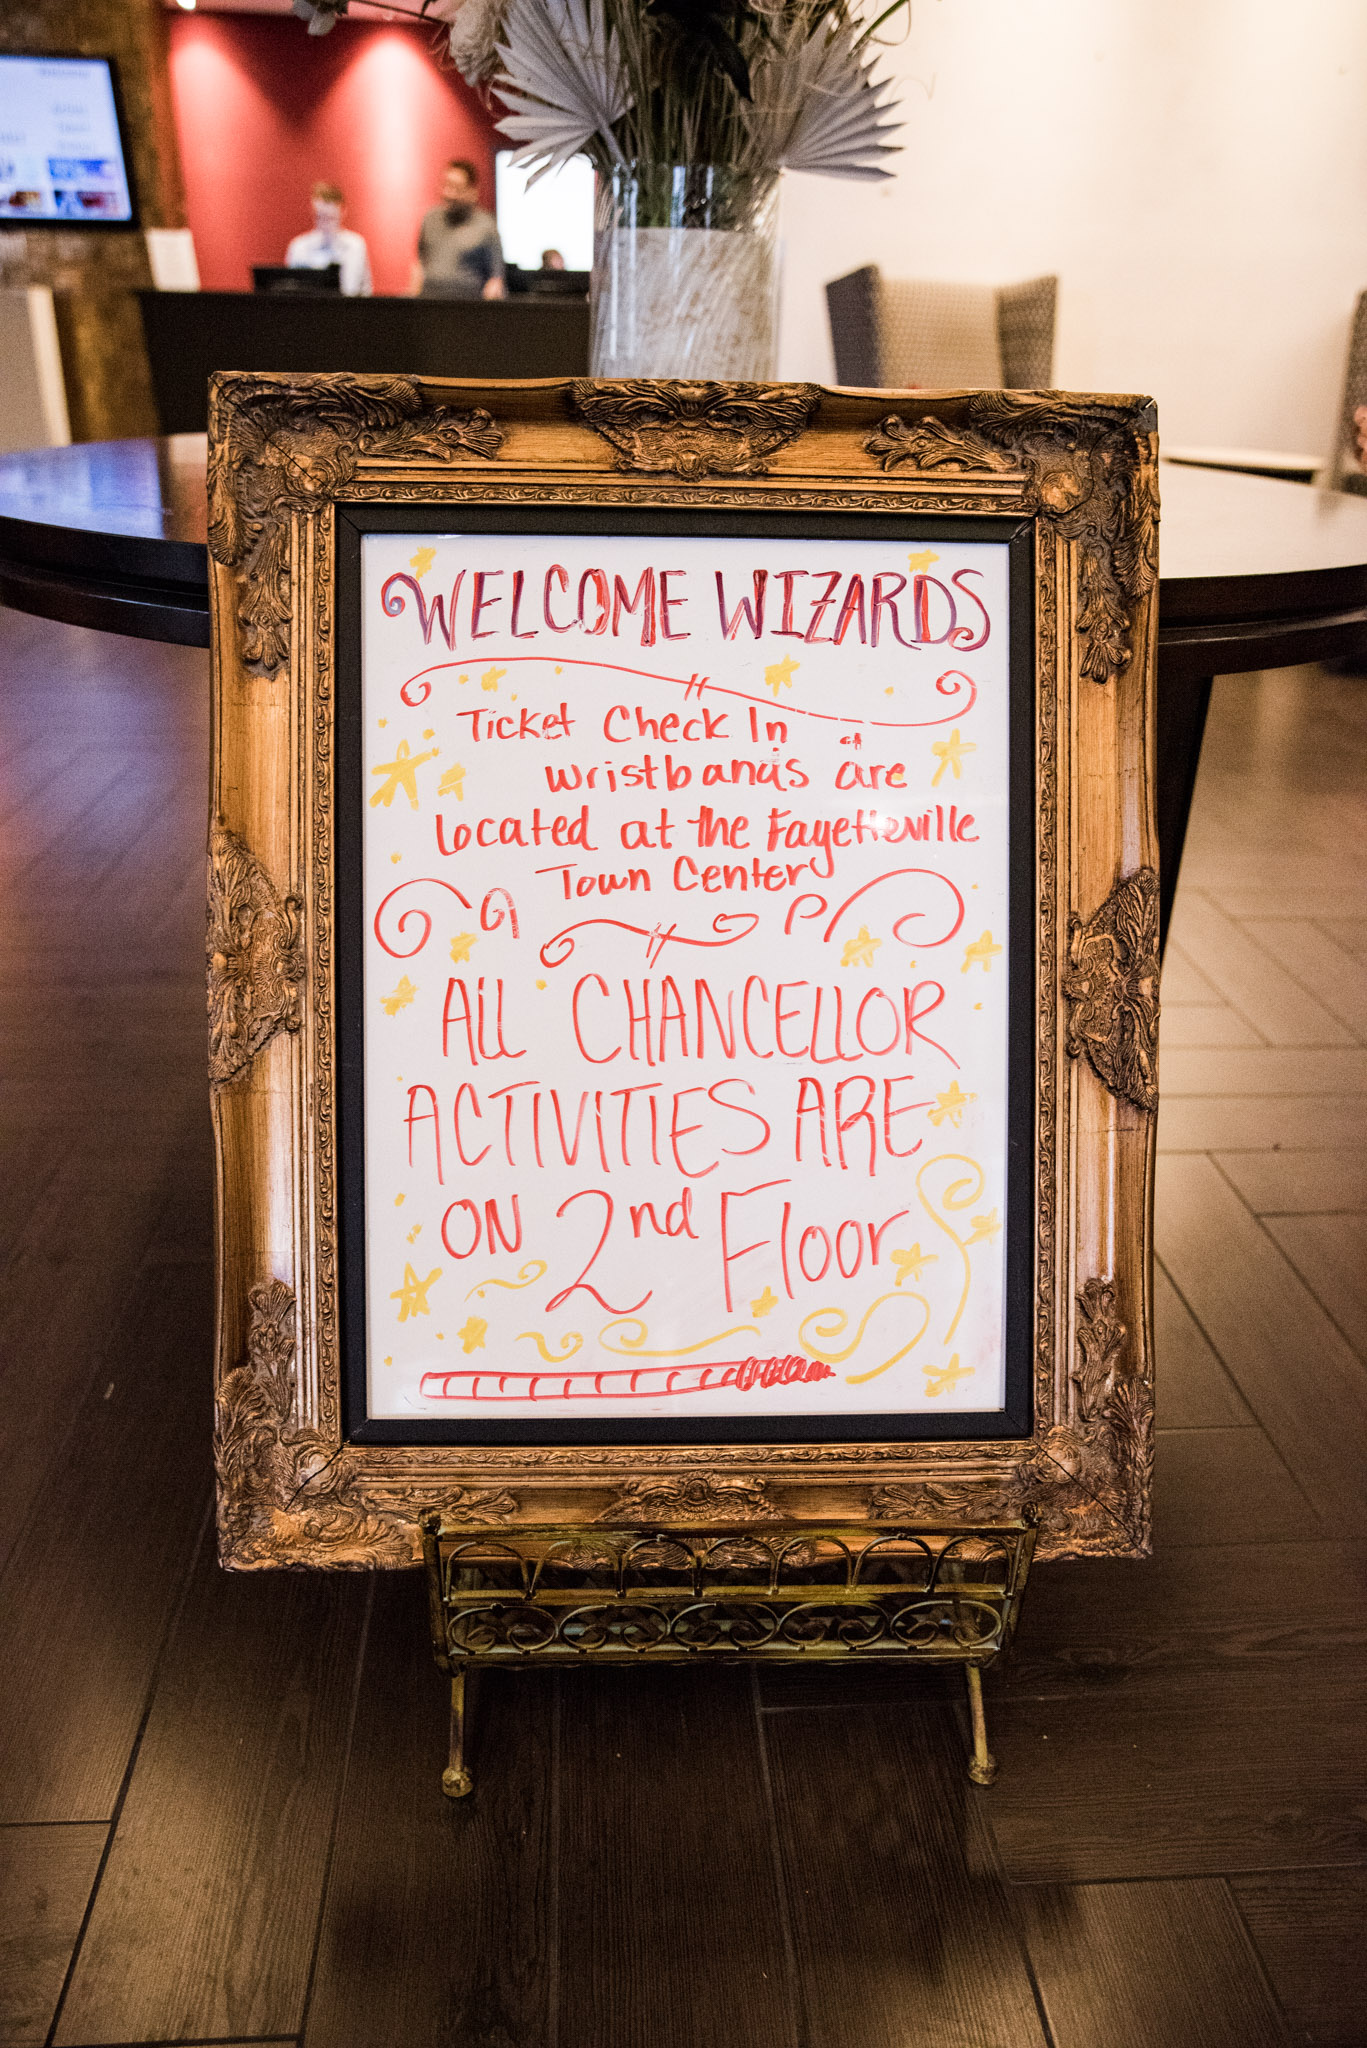 WELCOME WIZARDS
Ticket Check In
wristbands are
located at the Fayetteville
Town Center
All CHANCELLOR
ACTIVITIES ARE
ON 2nd Floor